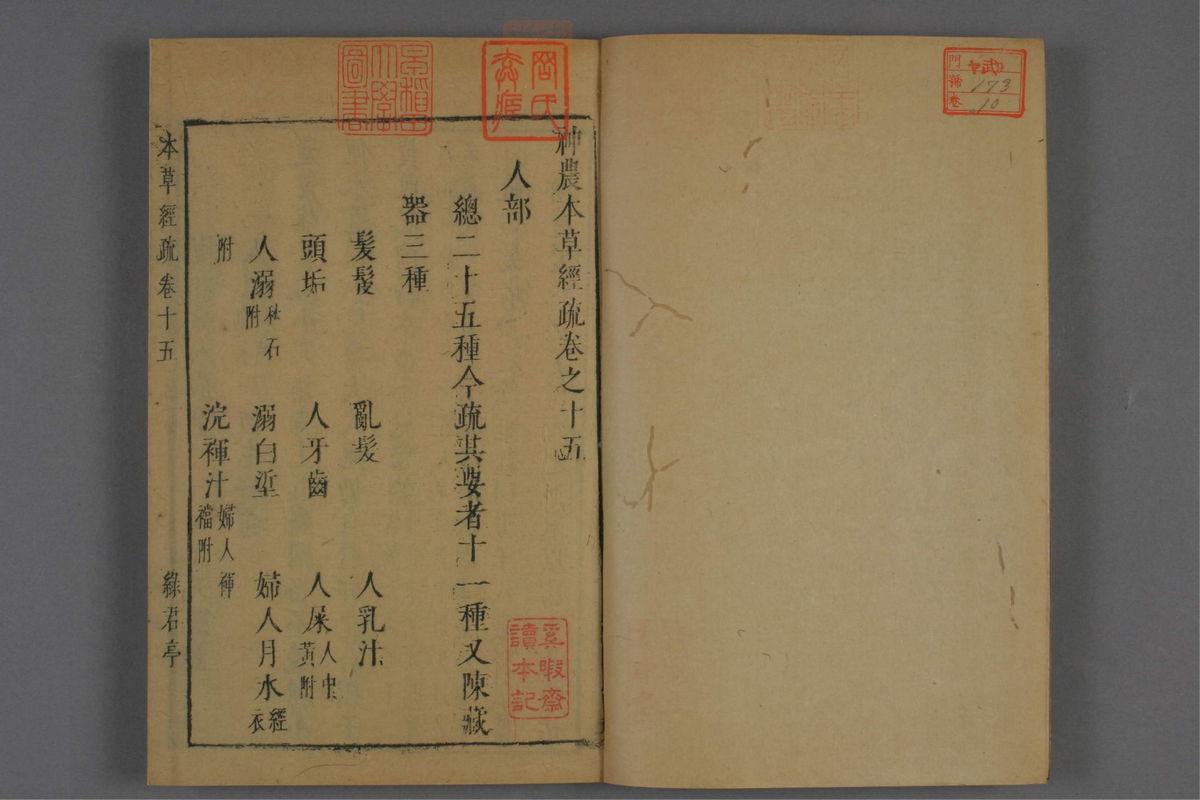 門
號 173
卷 10
神農本草經疏卷之十五
人部
總二十五種今疏其要者十一種又陳藏
器三種
髮髲 亂髮 人乳汁
頭垢 人牙齒 人屎人中黃附
人溺秋石附 溺白垽 婦人月水經衣
附 浣褌汁婦人褌襠附
本草經疏 卷十五 綠君亭
早稻田大學圖書
奚暇齋讀本記